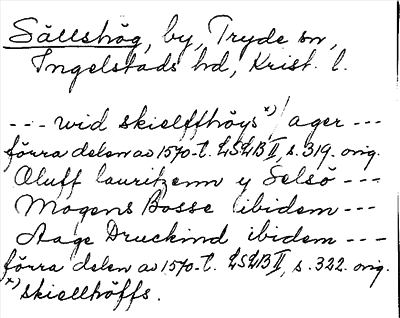 Sällshög, by, Tryde sn,
Ingelstads hd, Krist. l.
--- wid skielffhöys x) ager ---
förra delen av 1570-t. LSLB II, s. 319. orig.
Oluff lauritzenn y Selsö ---
Mogens Bosse ibidem ---
Aage Druckind ibidem ---
förra delen av 1570-t. LSLB II, s. 322. orig.
x) skiellhöffs.